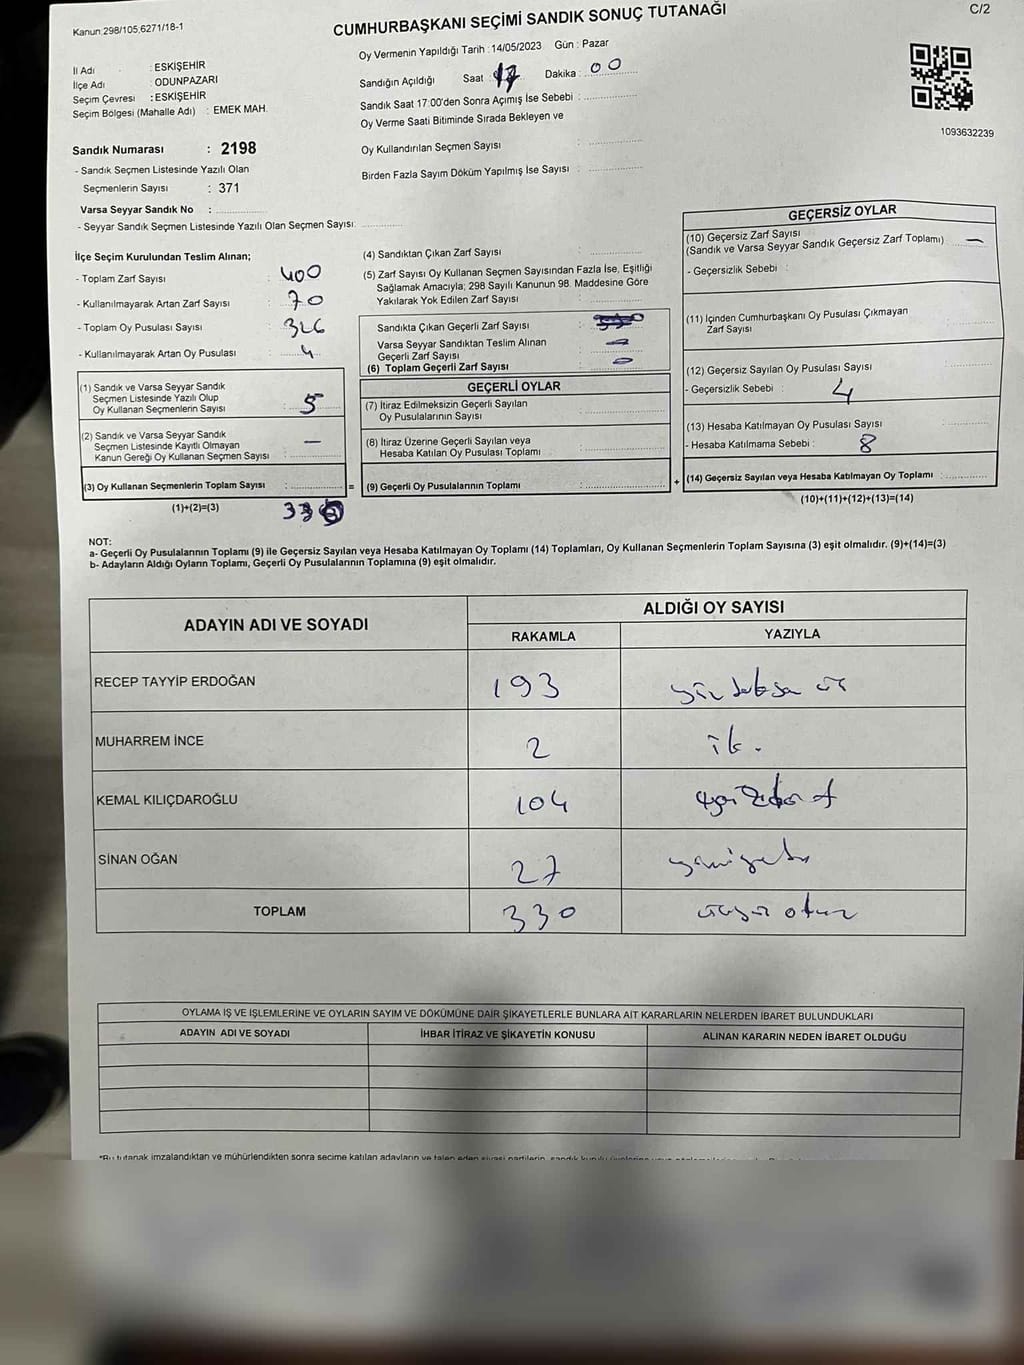 Kanun:298/105,6271/18-1
CUMHURBAŞKANI SEÇİMİ SANDIK SONUÇ TUTANAĞI
C/2
İl Adı : ESKİŞEHİR
İlçe Adı : ODUNPAZARI
Seçim Çevresi : ESKİŞEHİR
Seçim Bölgesi (Mahalle Adı) : EMEK MAH.
Oy Vermenin Yapıldığı Tarih : 14/05/2023 Gün : Pazar
Sandığın Açıldığı Saat : 17 Dakika : 00
Sandık Saat 17:00'den Sonra Açımış İse Sebebi :
Oy Verme Saati Bitiminde Sırada Bekleyen ve
Oy Kullandırılan Seçmen Sayısı :
Birden Fazla Sayım Döküm Yapılmış İse Sayısı :
1093632239
Sandık Numarası : 2198
- Sandık Seçmen Listesinde Yazılı Olan
Seçmenlerin Sayısı : 371
Varsa Seyyar Sandık No :
- Seyyar Sandık Seçmen Listesinde Yazılı Olan Seçmen Sayısı:
İlçe Seçim Kurulundan Teslim Alınan;
- Toplam Zarf Sayısı : 400
- Kullanılmayarak Artan Zarf Sayısı : 70
- Toplam Oy Pusulası Sayısı : 326
- Kullanılmayarak Artan Oy Pusulası : 4
(1) Sandık ve Varsa Seyyar Sandık
Seçmen Listesinde Yazılı Olup
Oy Kullanan Seçmenlerin Sayısı : 5
(2) Sandık ve Varsa Seyyar Sandık
Seçmen Listesinde Kayıtlı Olmayan
Kanun Gereği Oy Kullanan Seçmen Sayısı : —
(3) Oy Kullanan Seçmenlerin Toplam Sayısı : =
(1)+(2)=(3)
(4) Sandıktan Çıkan Zarf Sayısı :
(5) Zarf Sayısı Oy Kullanan Seçmen Sayısından Fazla İse, Eşitliği
Sağlamak Amacıyla; 298 Sayılı Kanunun 98. Maddesine Göre
Yakılarak Yok Edilen Zarf Sayısı :
Sandıkta Çıkan Geçerli Zarf Sayısı :
Varsa Seyyar Sandıktan Teslim Alınan
Geçerli Zarf Sayısı :
(6) Toplam Geçerli Zarf Sayısı :
GEÇERLİ OYLAR
(7) İtiraz Edilmeksizin Geçerli Sayılan
Oy Pusulalarının Sayısı :
(8) İtiraz Üzerine Geçerli Sayılan veya
Hesaba Katılan Oy Pusulası Toplamı :
(9) Geçerli Oy Pusulalarının Toplamı : +
GEÇERSİZ OYLAR
(10) Geçersiz Zarf Sayısı
(Sandık ve Varsa Seyyar Sandık Geçersiz Zarf Toplamı) : —
- Geçersizlik Sebebi :
(11) İçinden Cumhurbaşkanı Oy Pusulası Çıkmayan
Zarf Sayısı :
(12) Geçersiz Sayılan Oy Pusulası Sayısı :
- Geçersizlik Sebebi : 4
(13) Hesaba Katılmayan Oy Pusulası Sayısı :
- Hesaba Katılmama Sebebi : 8
(14) Geçersiz Sayılan veya Hesaba Katılmayan Oy Toplamı :
(10)+(11)+(12)+(13)=(14)
NOT:
a- Geçerli Oy Pusulalarının Toplamı (9) ile Geçersiz Sayılan veya Hesaba Katılmayan Oy Toplamı (14) Toplamları, Oy Kullanan Seçmenlerin Toplam Sayısına (3) eşit olmalıdır. (9)+(14)=(3)
b- Adayların Aldığı Oyların Toplamı, Geçerli Oy Pusulalarının Toplamına (9) eşit olmalıdır.
ADAYIN ADI VE SOYADI
ALDIĞI OY SAYISI
RAKAMLA YAZIYLA
RECEP TAYYİP ERDOĞAN 193
MUHARREM İNCE 2
KEMAL KILIÇDAROĞLU 104
SİNAN OĞAN 27
TOPLAM 330
OYLAMA İŞ VE İŞLEMLERİNE VE OYLARIN SAYIM VE DÖKÜMÜNE DAİR ŞİKAYETLERLE BUNLARA AİT KARARLARIN NELERDEN İBARET BULUNDUKLARI
ADAYIN ADI VE SOYADI İHBAR İTİRAZ VE ŞİKAYETİN KONUSU ALINAN KARARIN NEDEN İBARET OLDUĞU
*Bu tutanak imzalandıktan ve mühürlendikten sonra seçime katılan adayların ve talep eden siyasi partilerin, sandık kurulu